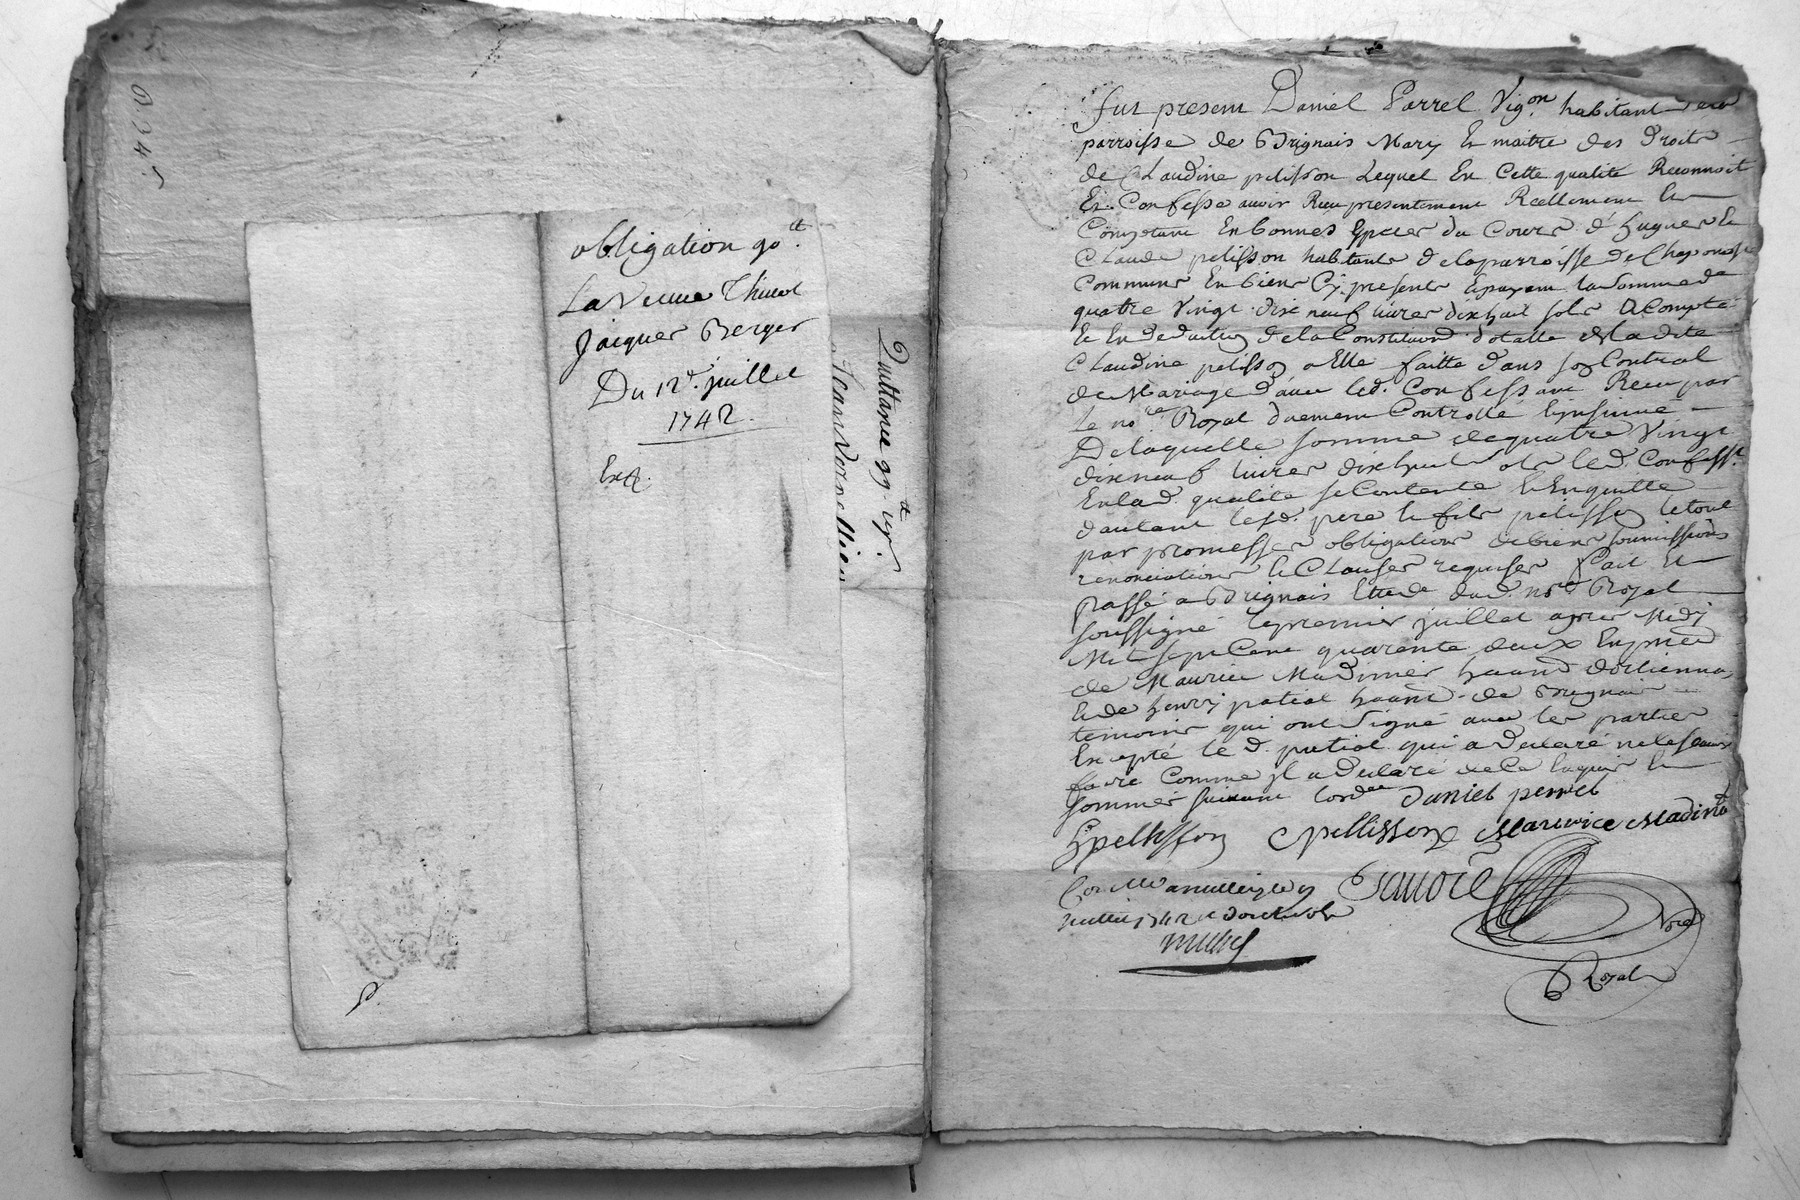 obligation 90tt.
La Veuve Thivol
Jacques Berger
Du 12e. juillet
1742.
Exp.
Quittance 99tt 18s.
Jean Vernellien
Fut present Daniel Parrel Vigon habitant en la
parroisse de Brignais Mary Et maitre des Droits
de Claudine pelisson Lequel En Cette qualité Reconnoit
Et Confesse avoir Receu presentement Reellement Et
Comptant En bonnes Especes du Cours d'hugues Et
Claude pelisson habitants de la parroisse de Chaponost
Communs En biens Cy presents Et payant la Somme de
quatre Vingt dix neuf livres dixhuit sols A Compte
Et En Deduction de la Constitution dotalle de Ladite
Claudine pelisson a Elle faitte dans son Contrat
de Mariage avec led. Confessant Receu par
Le nore Royal duement Controllé Et jnsinué
De laquelle somme de quatre Vingt
dix neuf livres dixhuit sols led. Confesst.
En lad. qualité se Contente Et En quitte
d'autant lesd. pere Et fils pelisson le tout
par promesses obligations de biens soumissions
renonciations Et Clauses requises fait Et
passé a Brignais Etude dud. nore Royal
soussigné le premier juillet apres Midy
Mil sept Cent quarente deux En pnce
de Maurice Madinier
Et de henry patial de Brignais
temoins qui ont Signé avec les parties
Excepté le d. patial qui a Declaré ne le sçavoir
faire Comme jl a Declaré de Ce Enquis Et
sommés suivant lordce Daniel perret
hpellisson Cpellisson Marurice Madinie
juillet 1742 R douze sols
nore
Royal